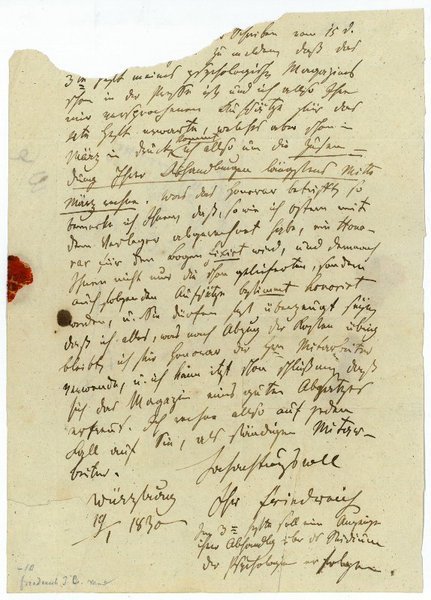 Schreiben vom 15 d.
zu melden daß das
3te Heft meines psychologischen Magazins
schon in der Presse ist und ich also Ihre
mir versprochenen Aufsätze für das
4te Heft erwarte, welches aber schon im
März in Druck kommt, also um die Zusen-
dung Ihrer Abhandlungen längstens Mitte
März. Was das Honorar betrifft so
bemerke ich Ihnen, daß, so wie ich Ostern mit
dem Verleger abgerechnet habe, ein Hono-
rar für den Bogen fixirt wird, und demnach
Ihnen nicht nur die schon gelieferten, sondern
auch folgenden Aufsätze bestimmt honorirt
werden, u. Sie dürfen fest überzeugt seyn,
daß ich alles, was nach Abzug der Kosten übrig
bleibt für Honorar der Hrn Mitarbeiter
verwende, u. ich kann itzt schon daß
sich das Magazin eines guten Absatzes
erfreut. Ich rechne also auf jeden
Fall auf Sie, als ständigen Mitar-
beiter.
Hochachtungsvoll
Würzburg Ihr Friedreich
19/1 1830
3te Hefte soll eine Anzeige
Ihrer Abhandlg über das Studium
der Psychologie erfolgen.
-10
Friedreich J. B.